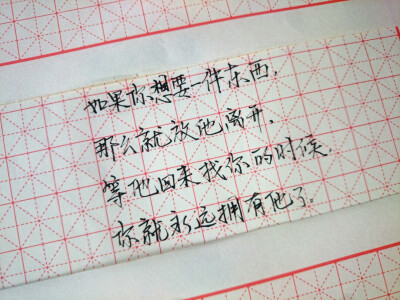 如果你想要一件东西,
那么就放他离开.
等他回来找你的时候.
你就永远拥有他了.